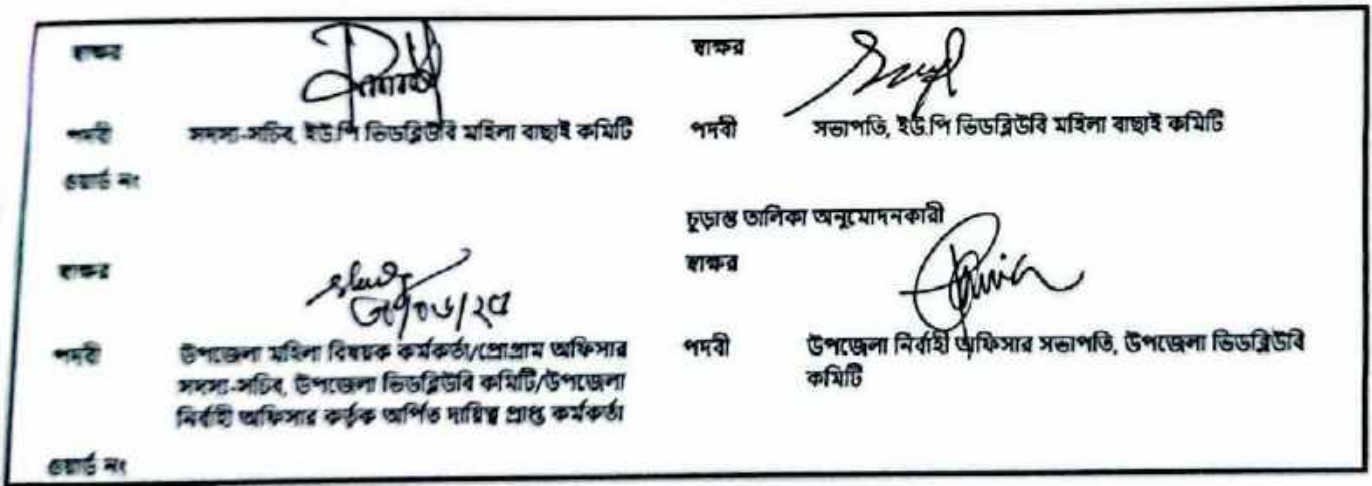 স্বাক্ষর
পদবী সদস্য-সচিব, ইউ.পি ভিডব্লিউবি মহিলা বাছাই কমিটি
ওয়ার্ড নং
স্বাক্ষর
পদবী সভাপতি, ইউ.পি ভিডব্লিউবি মহিলা বাছাই কমিটি
স্বাক্ষর
৩০/০৬/২৫
পদবী উপজেলা মহিলা বিষয়ক কর্মকর্তা/প্রোগ্রাম অফিসার
সদস্য-সচিব, উপজেলা ভিডব্লিউবি কমিটি/উপজেলা
নির্বাহী অফিসার কর্তৃক অর্পিত দায়িত্ব প্রাপ্ত কর্মকর্তা
ওয়ার্ড নং
চুড়ান্ত তালিকা অনুমোদনকারী
স্বাক্ষর
পদবী উপজেলা নির্বাহী অফিসার সভাপতি, উপজেলা ভিডব্লিউবি
কমিটি